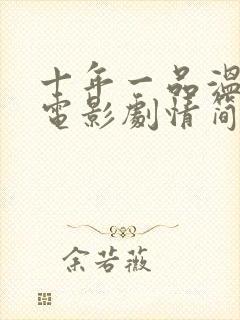 十年一品温
电影剧情简
余若薇